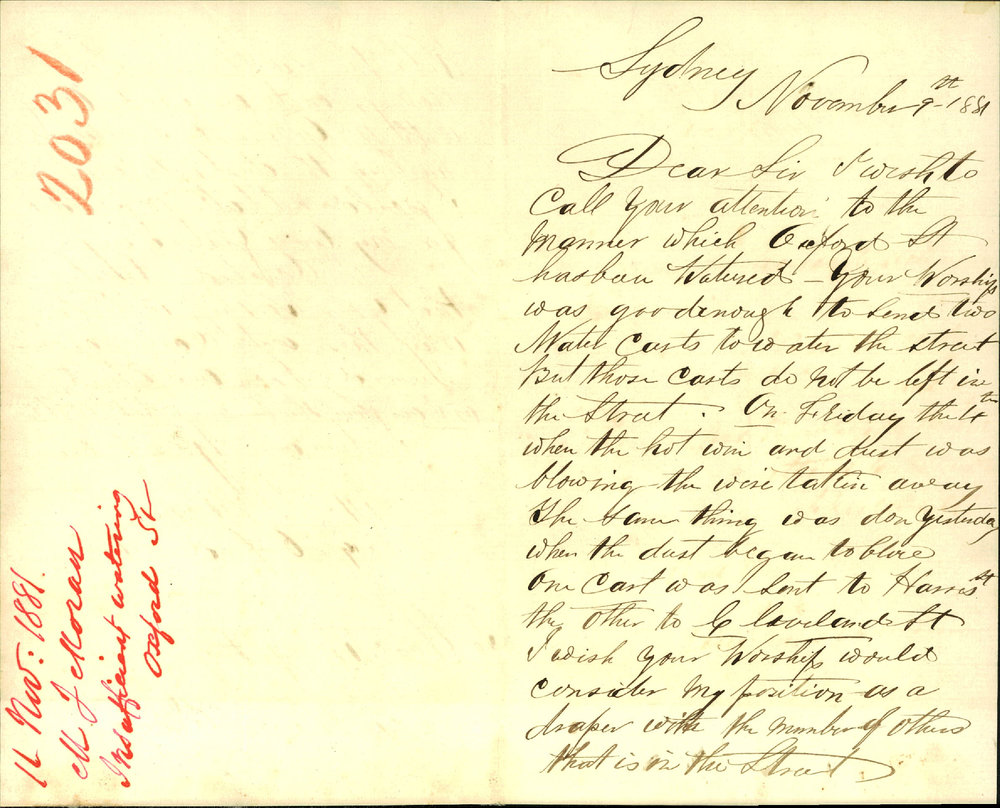 2031
11 Nov: 1881.
M J Moran
Insufficient watering
Oxford St
Sydney
November 9th 1881
Dear Sir I wish to
Call Your attention to the
Manner which Oxford St
has been Watered - Your Worship
was good enough to send two
Water Carts to water the street
But those Carts do not be left in
the Street. On Friday the 4th
when the hot win and dust was
blowing the were taken away
The same thing was don yesterday
when the dust began to blow
One Cart was sent to Harris St
the other to Cleveland St
I wish your Worship would
Consider My position as a
draper with the number of others
that is in the Street